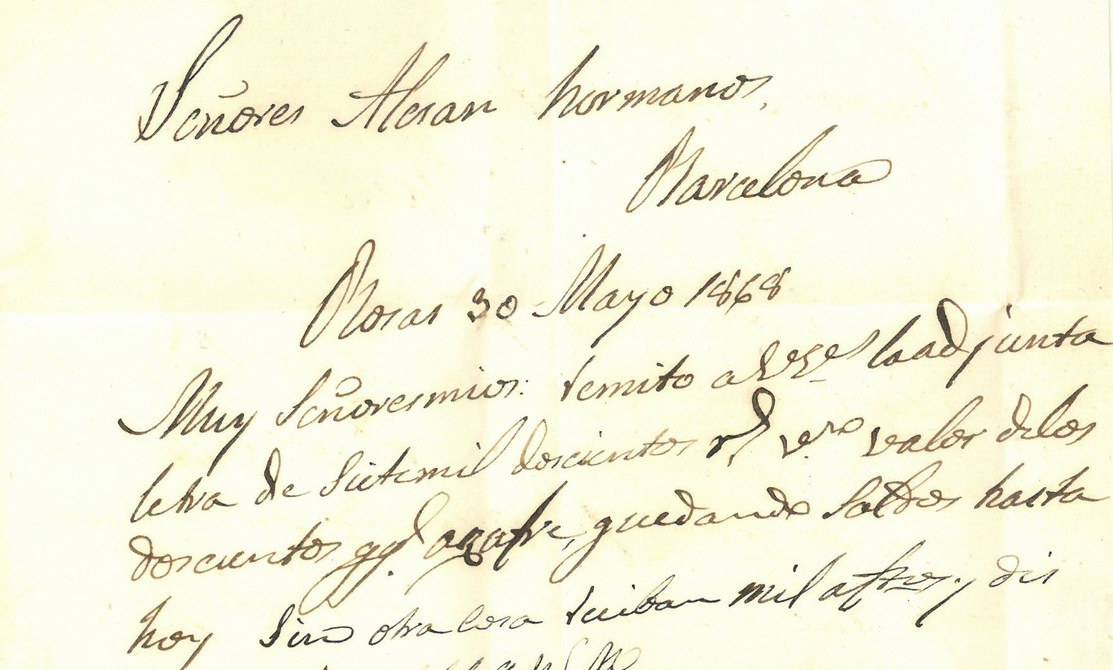 Señores Alesan hermanos,
Barcelona
Rosas 30 Mayo 1868
Muy Señores mios: remito a VVes la adjunta
letra de siete mil doscientos rs. vn. valor de los
doscientos qq. azufre, quedando saldos hasta
hoy Sin otra cosa reciban mil aftos. y dis